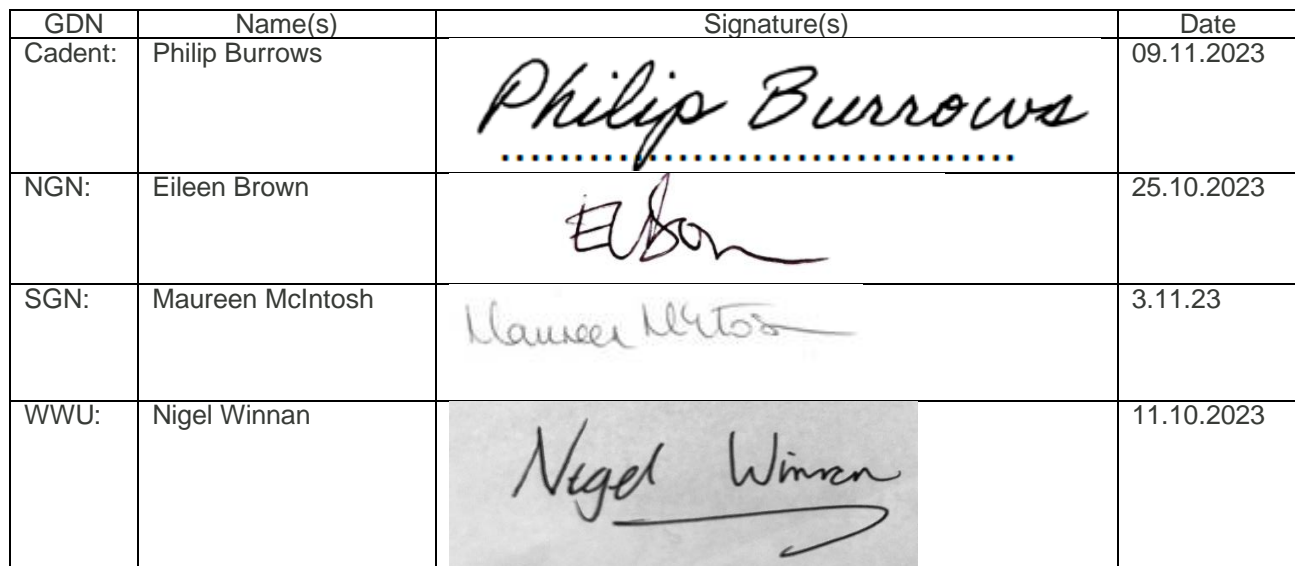 GDN Name(s) Signature(s) Date
Cadent: Philip Burrows Philip Burrows 09.11.2023
NGN: Eileen Brown 25.10.2023
SGN: Maureen McIntosh 3.11.23
WWU: Nigel Winnan Nigel Winnan 11.10.2023